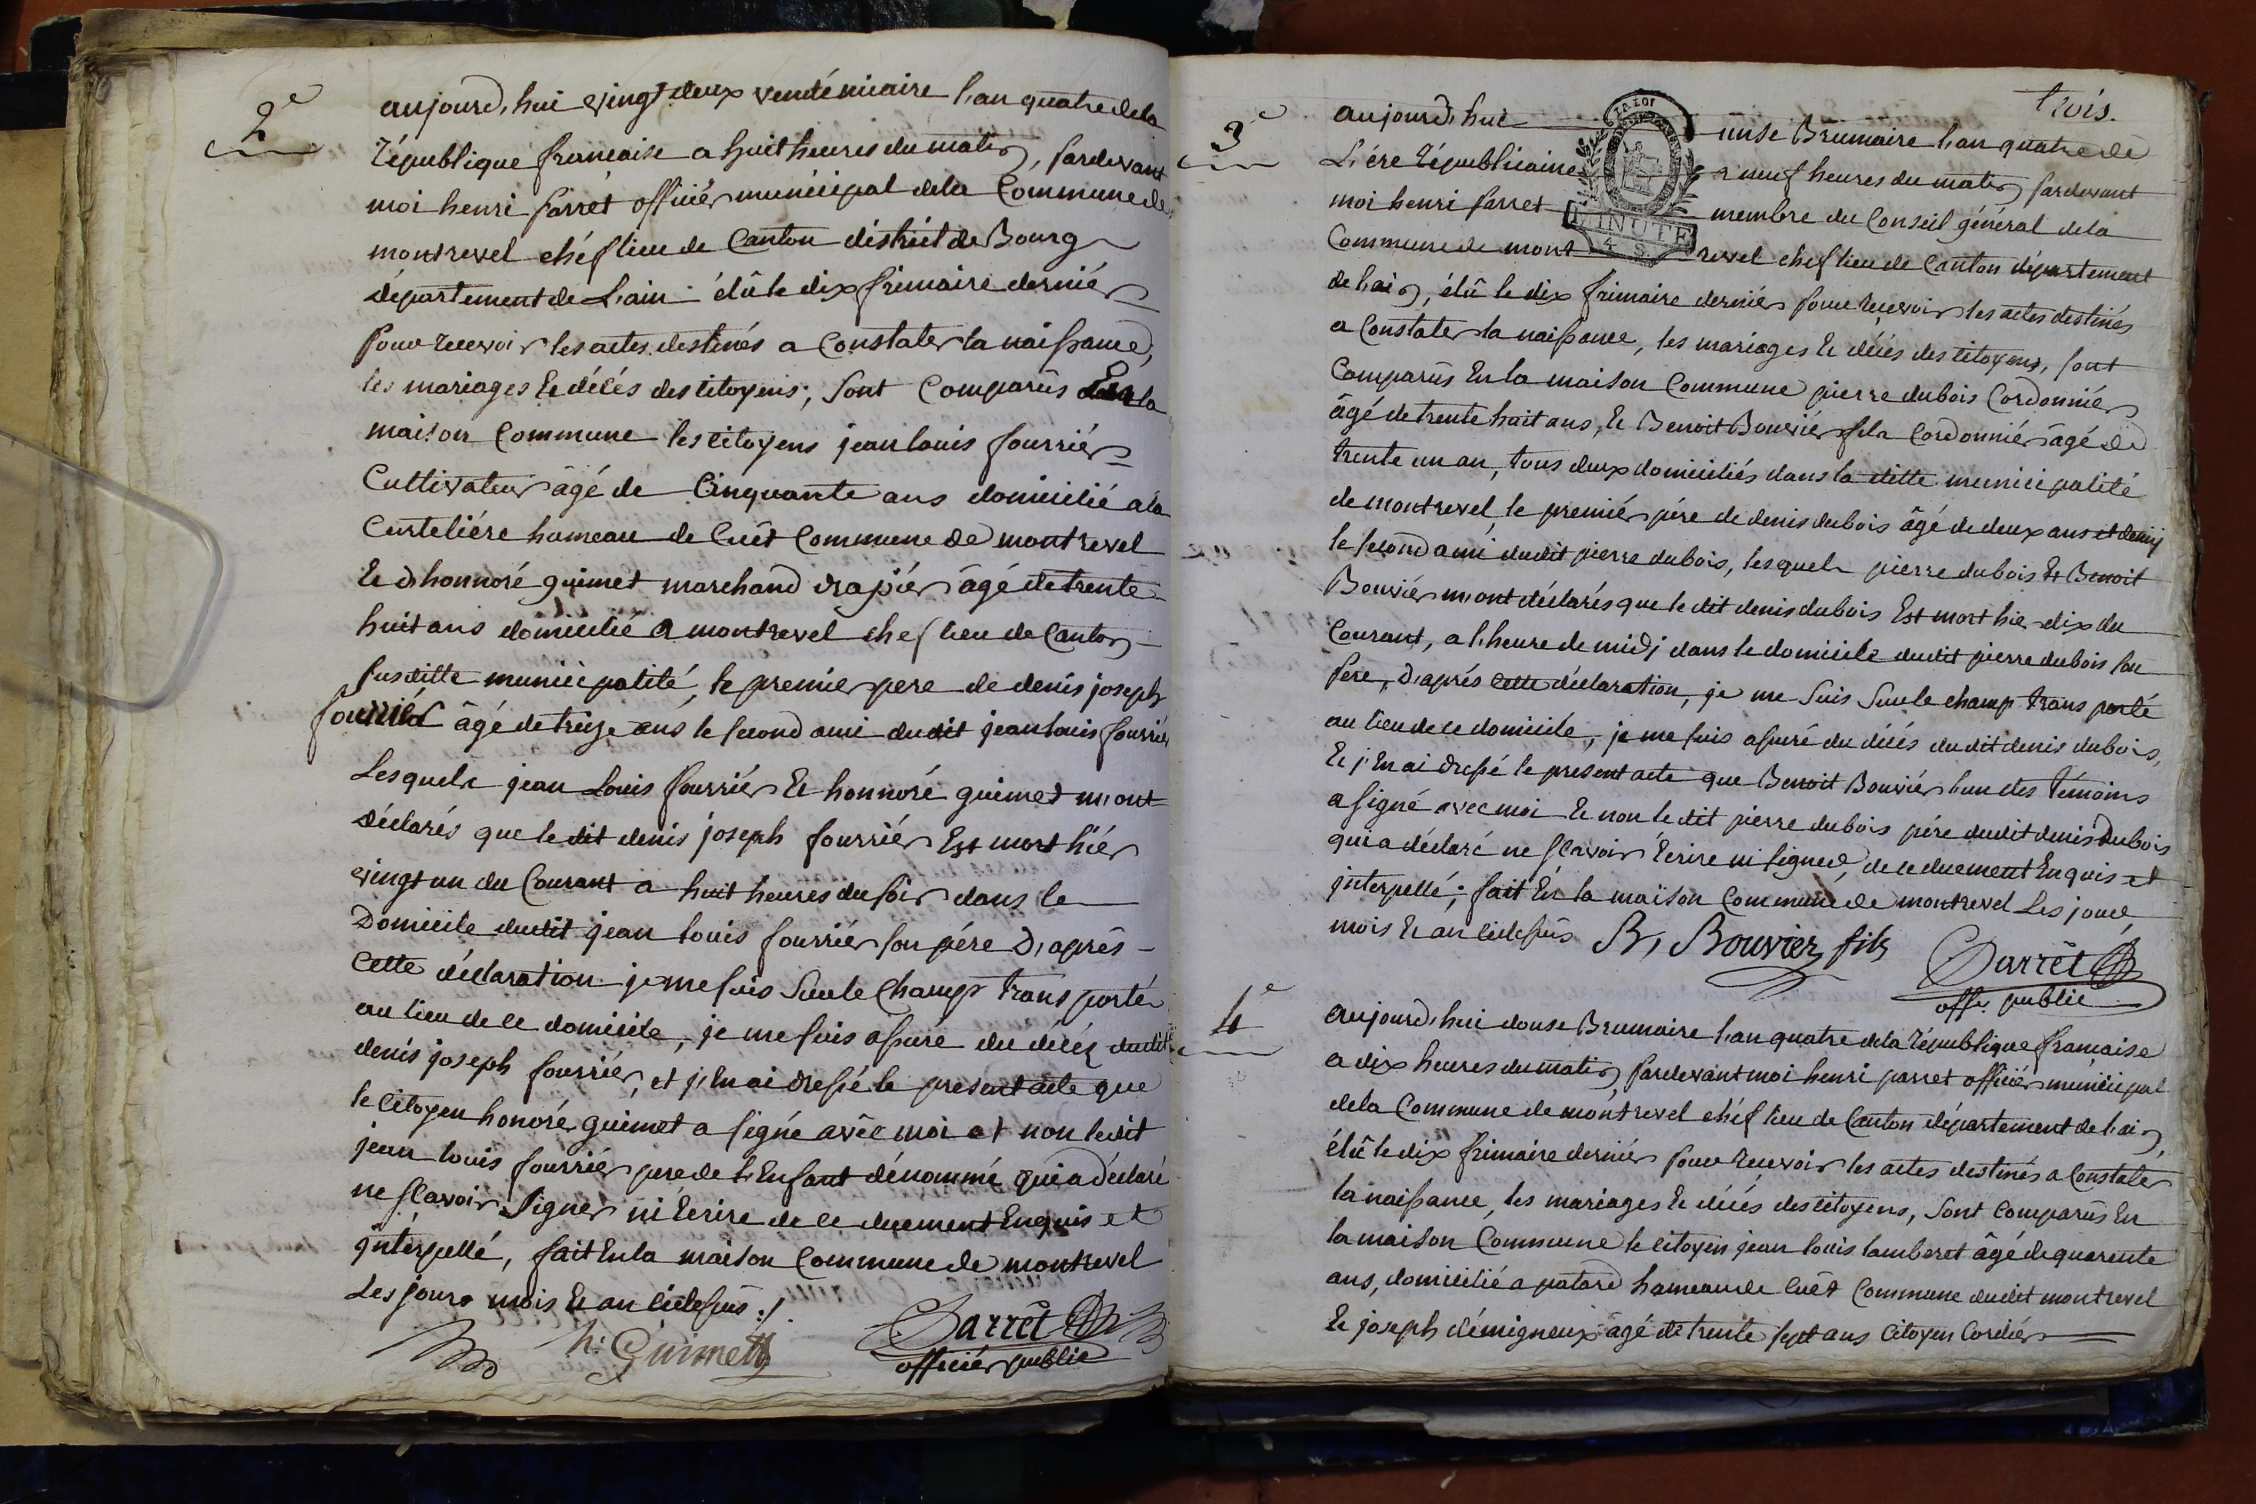 2e
aujourd,hui vingt deux vendémiaire l,an quatre dela
République francaise a huit heures du matin, pardevant
moi henri parret officiér municipal dela Commune de
montrevel chéf lieu de Canton district de Bourg
département de L'ain élû le dix frimaire derniér
pour recevoir les actes destinés a Constater la naissance,
les mariages Et décés des citoyens; sont Comparûs En la
maison Commune les citoyens jean louis fourriér
Cultivateur âgé de Cinquante ans domicilié a la
Curteliére hameau de Cuêt Commune de montrevel
Et honnoré guimet marchand drapiér âgé de trente
huit ans domicilié a montrevel chef lieu de Canton
susditte municipalité, le premier pere de denis joseph
fourriér âgé de treize ans le second ami dudit jean louis fourriér
Lesquels jean Louis fourriér Et honnoré guimet m,ont
déclarés que le dit denis joseph fourriér Est mort hiér
vingt un du Courant a huit heures du soir dans le
Domicile dudit jean louis fourriér son pére D,aprês
Cette déclaration je me suis sur le Champ transporté
au lieu de ce domicile, je me suis assuré du décéz dudit
denis joseph fourriér, et j,En ai dressé le present acte que
le Citoyen honoré guimet a signé avêc moi et non ledit
jean louis fourriér pere de L'Enfant dénommé qui a déclaré
ne sçavoir Signer ni Ecrire de ce duement Enquis et
interpellé, fait En la maison Commune de montrevel
Les jours mois Et an cidessûs ./.
h: Guimett
Parrêt
officiér public
trois.
LA LOI
MINUTE
4 S
3e
aujourd,hui unse Brumaire l,an quatre de
L'ére Républicaine a neuf heures du matin pardevant
moi henri parret membre du Conseil général dela
Commune de montrevel chef lieu de Canton département
de l,ain, élû le dix frimaire derniér pour recevoir les actes destinés
a Constater la naissance, les mariages Et décés des citoyens, sont
Comparûs En la maison Commune pierre dubois Cordonniér
âgé de trente huit ans, Et Benoit Bouviér fils Cordonniér âgé de
trente un an, tous deux domiciliés dans la ditte municipalité
de montrevel, le premiér pére de denis dubois âgé de deux ans et demij
le second ami dudit pierre dubois, lesquels pierre dubois Et Benoit
Bouviér m,ont déclarés que le dit denis dubois Est mort hier dix du
Courant, a l,heure de midj dans le domicile dudit pierre dubois son
Pere, D,aprés cette déclaration, je me Suis Sur le champ transporté
au lieu de ce domicile, je me suis assuré du décés dudit denis dubois,
Et j,En ai dressé le present acte que Benoit Bouviér l,un des témoins
a signé avec moi Et non le dit pierre dubois pére dudit denis Dubois
qui a déclaré ne sçavoir Ecrire ni signer, de ce duement Enquis et
interpellé; fait En la maison Commune de montrevel Les jour,
mois Et an cidessûs
B, Bouvier fils
Parrêt
offr. public
4e
aujourd,hui douse Brumaire l,an quatre dela République francaise
a dix heures du matin, pardevant moi henri parret officiér municipal
dela Commune de montrevel chéf lieu de Canton département de l,ain,
élû le dix frimaire derniér pour recevoir les actes destinés a Constater
la naissance, les mariages Et décés des citoyens, sont Comparûs En
la maison Commune le citoyen jean louis lamberet âgé de quarente
ans, domicilié a patard hameau de Cuêt Commune dudit montrevel
Et joseph démigneux âgé de trente sept ans Citoyen Cordiér